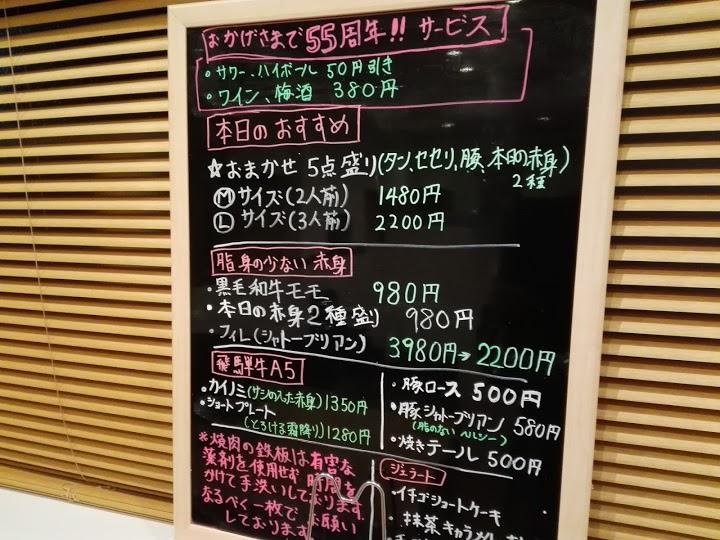 おかげさまで55周年!! サービス
・サワー、ハイボール 50円引き
・ワイン、梅酒 380円
本日のおすすめ
☆おまかせ 5点盛り(タン、セセリ、豚、本日の赤身)
2種
Ⓜサイズ(2人前) 1480円
Ⓛサイズ(3人前) 2200円
脂身の少ない赤身
・黒毛和牛モモ 980円
・本日の赤身2種盛り 980円
・フィレ(シャトーブリアン) 3980円→2200円
飛騨牛A5
・カイノミ(サシの入った赤身)1350円
・ショートプレート
(とろける霜降り)1280円
・豚ロース 500円
・豚シャトーブリアン 580円
(脂のない ヘルシー)
・焼きテール 500円
※焼肉の鉄板は有害な
薬剤を使用せず 時間を
かけて手洗いしております
なるべく一枚で お願い
しております
ジェラート
・イチゴショートケーキ
・抹茶キャラメル